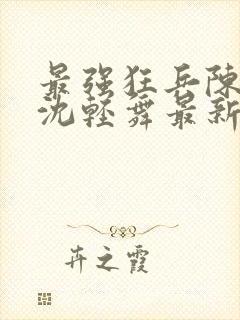 最强狂兵陳
沈轻舞最新
卉之霞